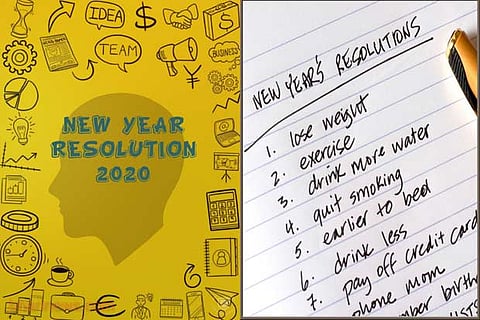 IDEA
$
TEAM
BUSINESS
¥
NEW YEAR
RESOLUTION
2020
€
NEW YEAR'S RESOLUTIONS
1. lose weight
2. exercise
3. drink more water
4. quit smoking
5. earlier to bed
6. drink less
7. pay off credit card
phone mom